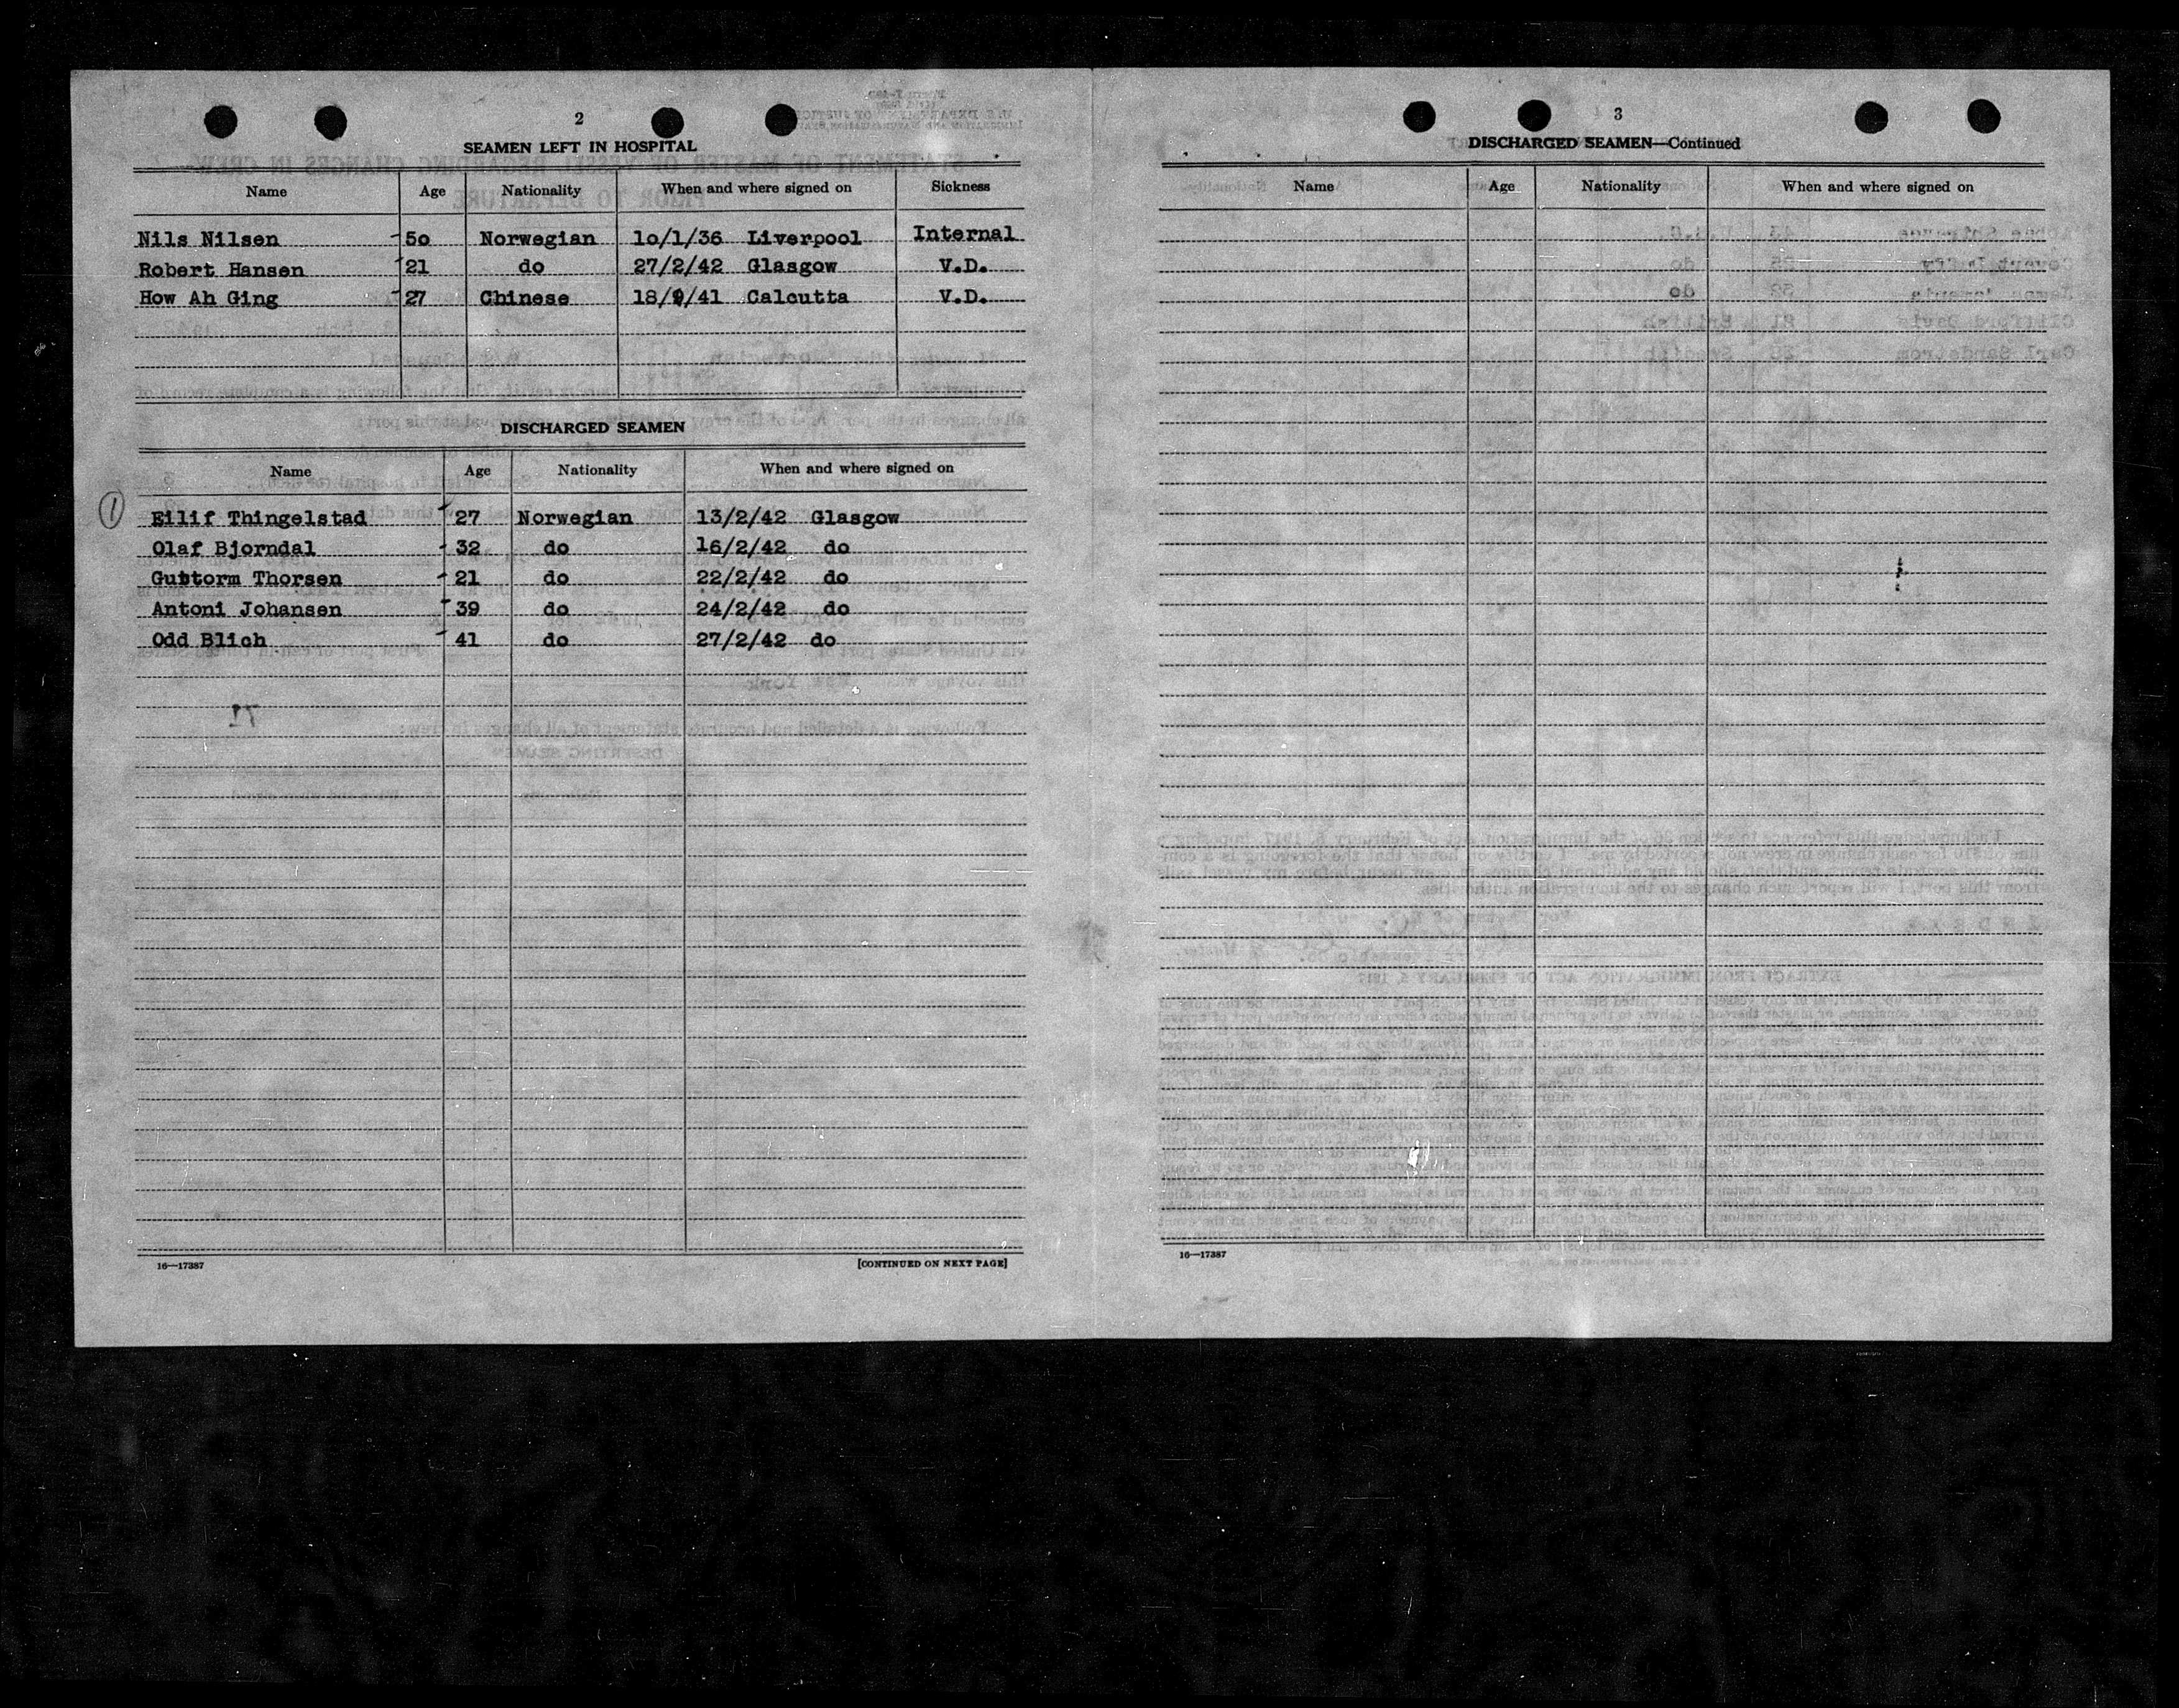 2
SEAMEN LEFT IN HOSPITAL
Name Age Nationality When and where signed on Sickness
Nils Nilsen 50 Norwegian 10/1/36 Liverpool Internal
Robert Hansen 21 do 27/2/42 Glasgow V.D.
How Ah Ging 27 Chinese 18/9/41 Calcutta V.D.
DISCHARGED SEAMEN
Name Age Nationality When and where signed on
1 Eilif Thingelstad 27 Norwegian 13/2/42 Glasgow
Olaf Bjorndal 32 do 16/2/42 do
Guttorm Thorsen 21 do 22/2/42 do
Antoni Johansen 39 do 24/2/42 do
Odd Blich 41 do 27/2/42 do
16—17387 [CONTINUED ON NEXT PAGE]
3
DISCHARGED SEAMEN—Continued
Name Age Nationality When and where signed on
16—17387